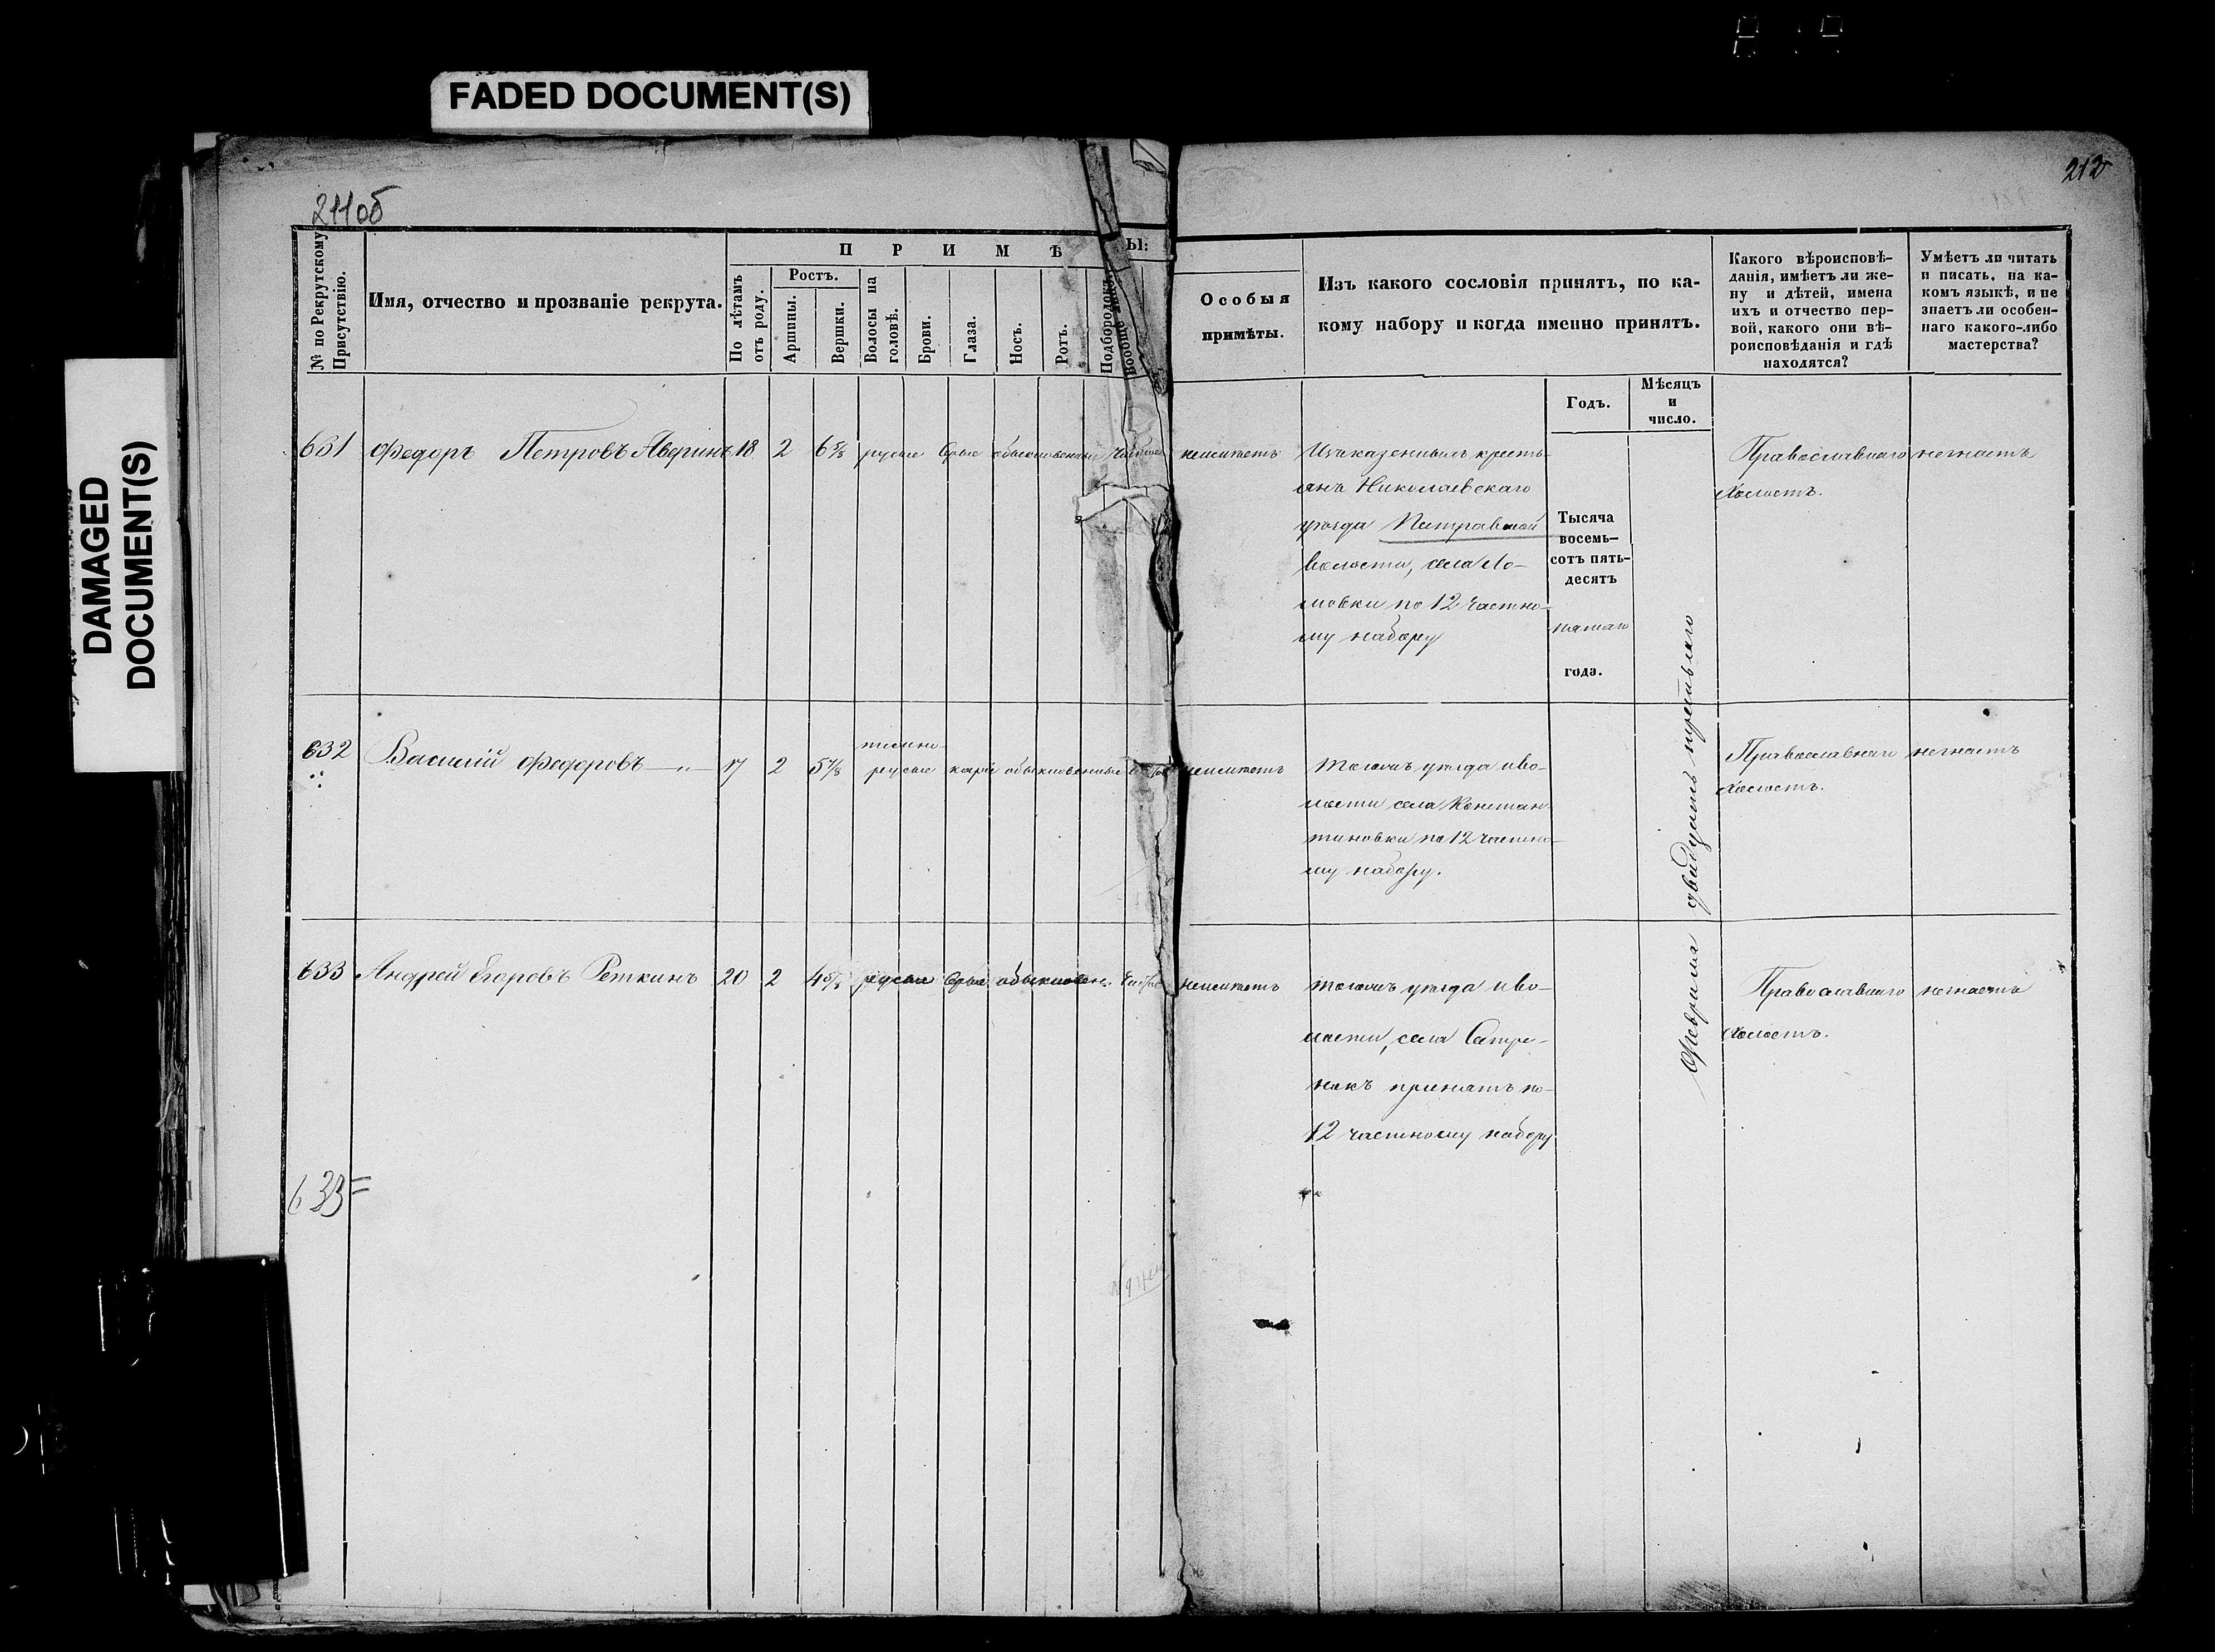 FADED DOCUMENT(S)
DAMAGED
DOCUMENT(S)
211об
212
№ по Рекрутскому
Присутствію.
Имя, отчество и прозваніе рекрута.
П Р И М Ѣ ТЫ:
По лѣтамъ
отъ роду.
Ростъ.
Аршины.
Вершки.
Волосы на
головѣ.
Брови.
Глаза.
Носъ.
Ротъ.
Подбородокъ.
Особыя
примѣты.
Изъ какого сословія принятъ, по ка-
кому набору и когда именно принятъ.
Годъ.
Мѣсяцъ
и
число.
Какого вѣроисповѣ-
данія, имѣетъ ли же-
ну и дѣтей, имена
ихъ и отчество пер-
вой, какого они вѣ-
роисповѣданія и гдѣ
находятся?
Умѣетъ ли читать
и писать, на ка-
комъ языкѣ, и не
знаетъ ли особен-
наго какого-либо
мастерства?
631 Федоръ Петровъ Аверинъ 18 2 6 5/8 русые сѣрые обыкновенные неимѣетъ
Изъ казенныхъ кресть-
янъ Николаевскаго
уѣзда Петровской
волости, села Ло-
мовки по 12 частно-
му набору
Тысяча
восемь-
сотъ пять-
десятъ
пятаго
года.
Февраля двадцать третьяго
Православнаго
Холостъ.
незнаетъ
632 Василій Федоровъ —"— 17 2 5 7/8
темно-
русые карiе обыкновенные неимѣетъ
Тогожъ уѣзда и во-
лости села Констан-
тиновки по 12 частно-
му набору.
Православнаго
Холостъ.
незнаетъ
633 Андрей Егоровъ Реткинъ 20 2 4 5/8 русые сѣрые обыкновен. неимѣетъ
Тогожъ уѣзда и во-
лости, села
принятъ по
12 частному набору
Православнаго
Холостъ.
незнаетъ
633=